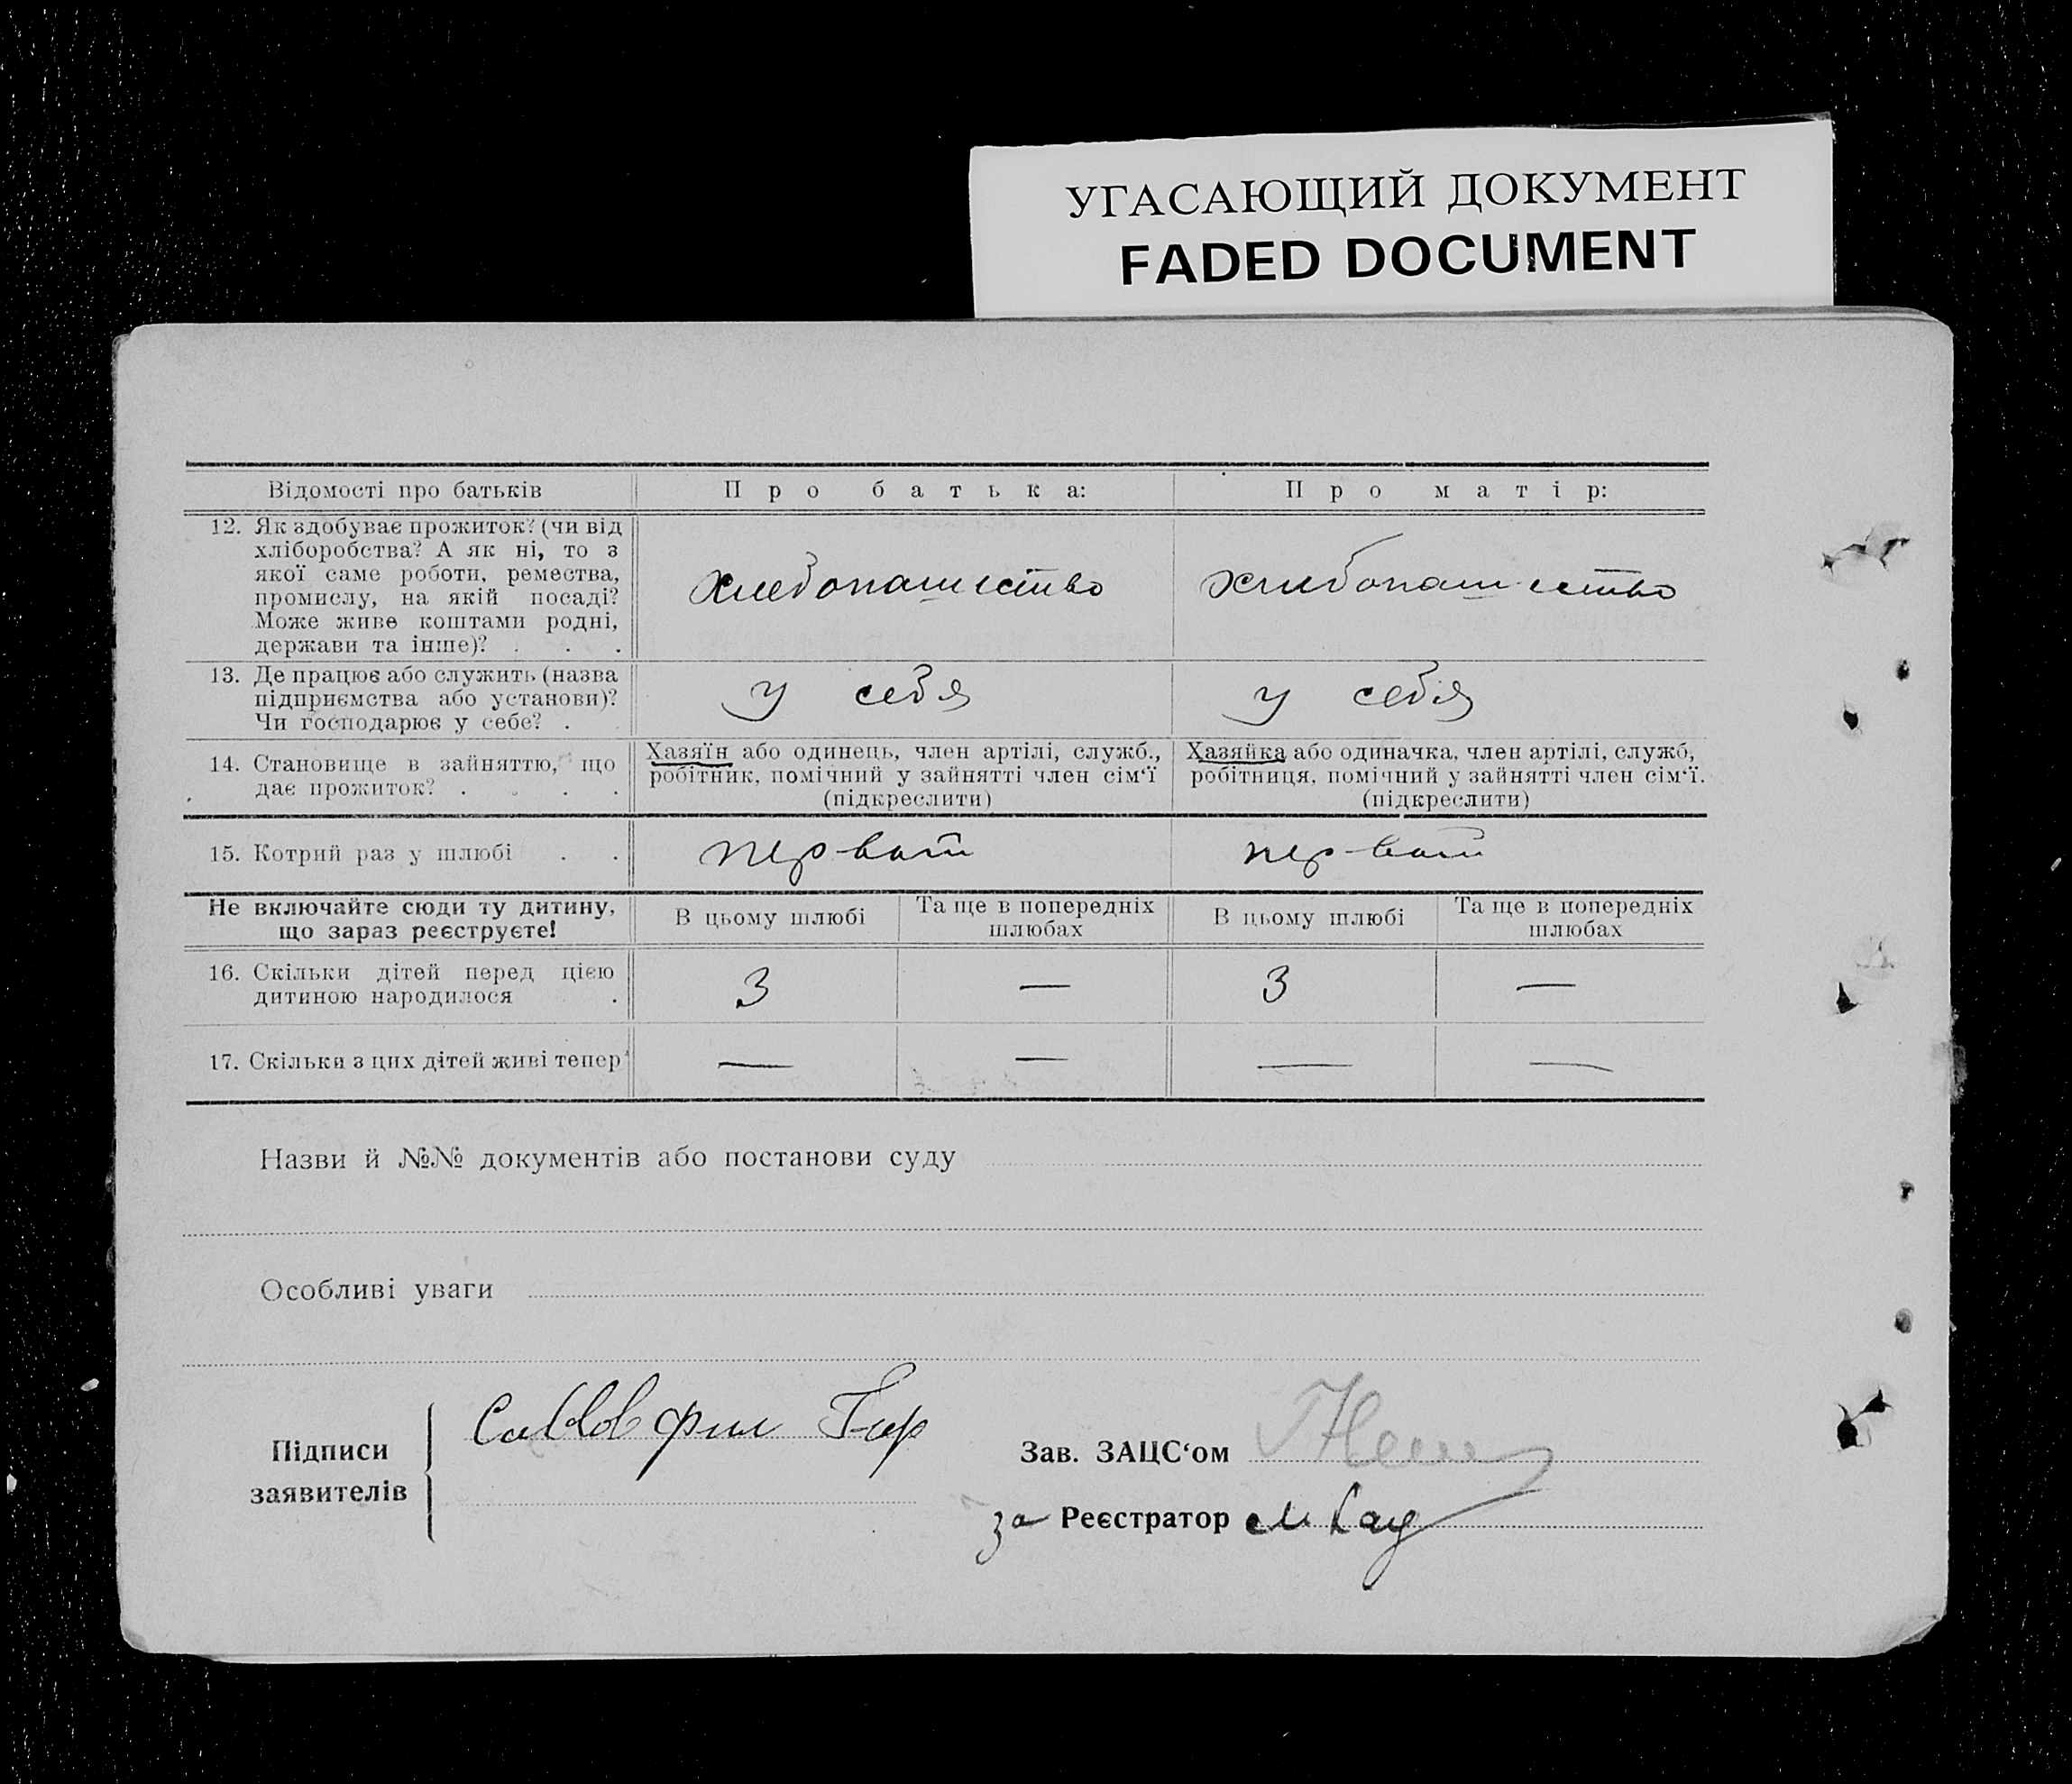 УГАСАЮЩИЙ ДОКУМЕНТ
FADED DOCUMENT
Відомості про батьків
Про батька:
Про матір:
12. Як здобуває прожиток? (чи від
хліборобства? А як ні, то з
якої саме роботи, ремества,
промислу, на якій посаді?
Може живе коштами родні,
держави та інше)? . . .
хлебопашество
хлибопашество
13. Де працює або служить (назва
підприємства або установи)?
Чи господарює у себе? .
у себя
у себя
14. Становище в зайняттю, що
дає прожиток? . . . .
Хазяїн або одинець, член артілі, служб.,
робітник, помічний у зайнятті член сім‘ї
(підкреслити)
Хазяйка або одиначка, член артілі, служб,
робітниця, помічний у зайнятті член сім‘ї.
(підкреслити)
15. Котрий раз у шлюбі . .
первой
первой
Не включайте сюди ту дитину,
що зараз реєструєте!
В цьому шлюбі
Та ще в попередніх
шлюбах
В цьому шлюбі
Та ще в попередніх
шлюбах
16. Скільки дітей перед цією
дитиною народилося .
3
—
3
—
17. Скільки з цих дітей живі тепер
—
—
—
—
Назви й №№ документів або постанови суду
Особливі уваги
Підписи
заявителів
Зав. ЗАЦС‘ом
за Реєстратор